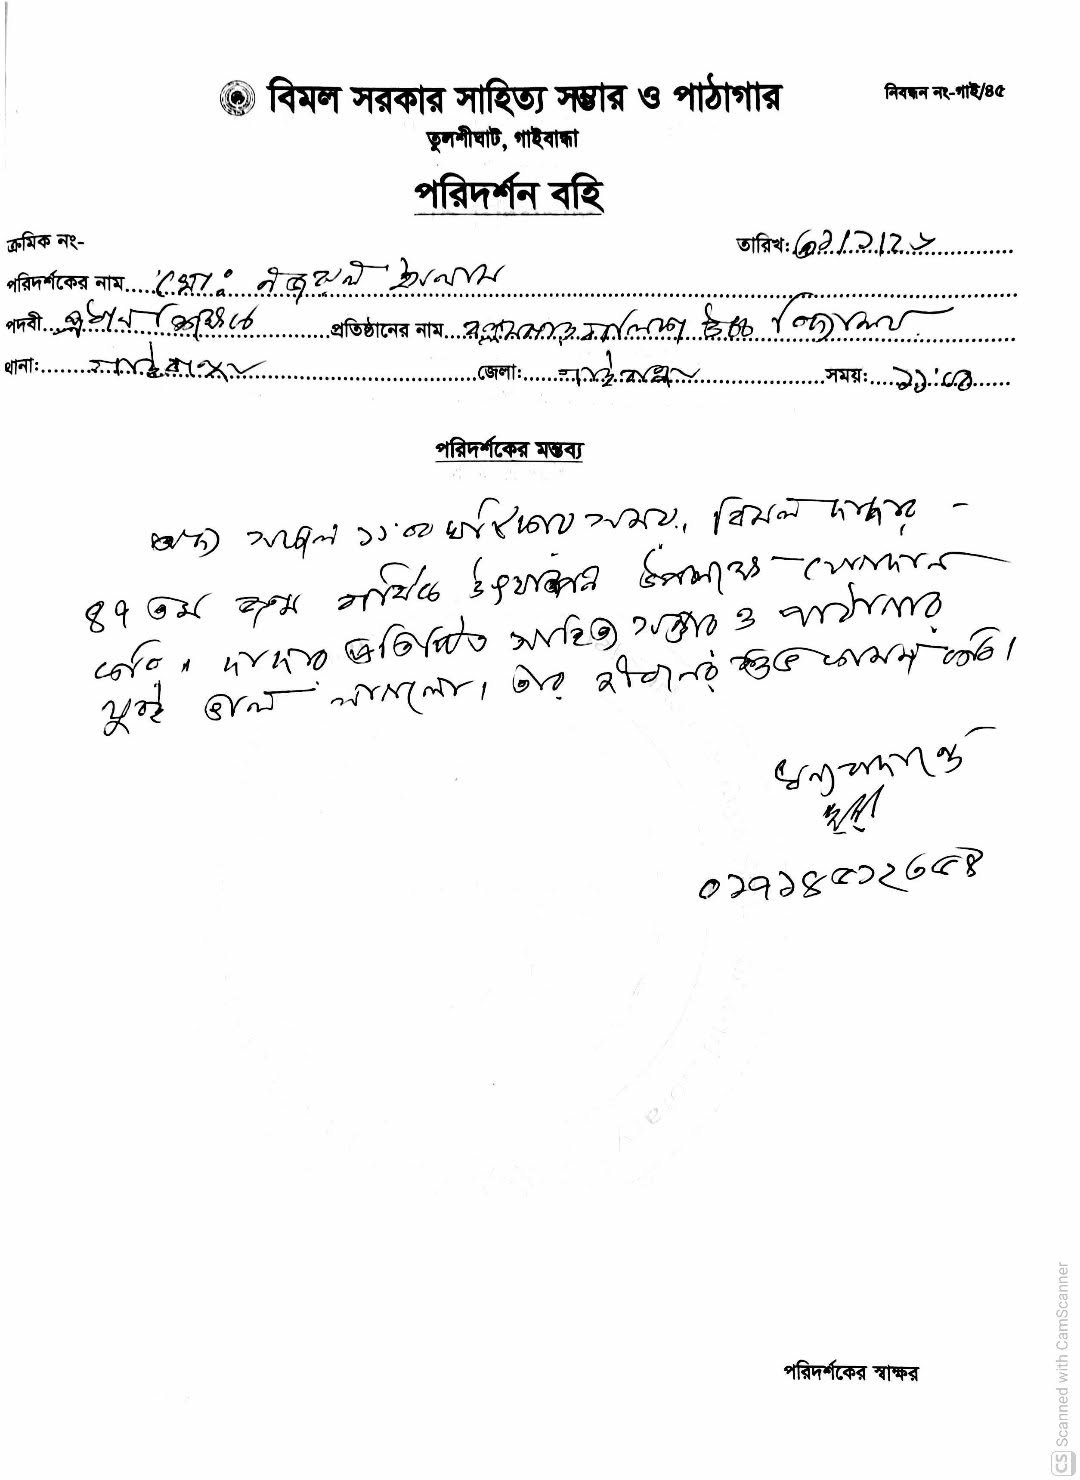 বিমল সরকার সাহিত্য সম্ভার ও পাঠাগার
নিবন্ধন নং-গাই/৪৫
তুলশীঘাট, গাইবান্ধা
পরিদর্শন বহি
ক্রমিক নং-
তারিখ:
পরিদর্শকের নাম মোঃ নজরুল ইসলাম
পদবী প্রধান শিক্ষক প্রতিষ্ঠানের নাম বালিকা উচ্চ বিদ্যালয়
থানা: গাইবান্ধা জেলা: গাইবান্ধা সময়: ১১:০০
পরিদর্শকের মন্তব্য
অদ্য সকাল ১১:০০ ঘটিকার সময়, বিমল দাদার -
৪৭ তম জন্ম বার্ষিক উৎযাপন উপলক্ষে যোগদান
করি। দাদার প্রতিষ্ঠিত সাহিত্য সম্ভার ও পাঠাগার
খুবই ভাল লাগলো। তাঁর জীবনের শুভ কামনা করি।
ধন্যবাদান্তে
০১৭১৪৫১২৬৫৪
পরিদর্শকের স্বাক্ষর
CS Scanned with CamScanner